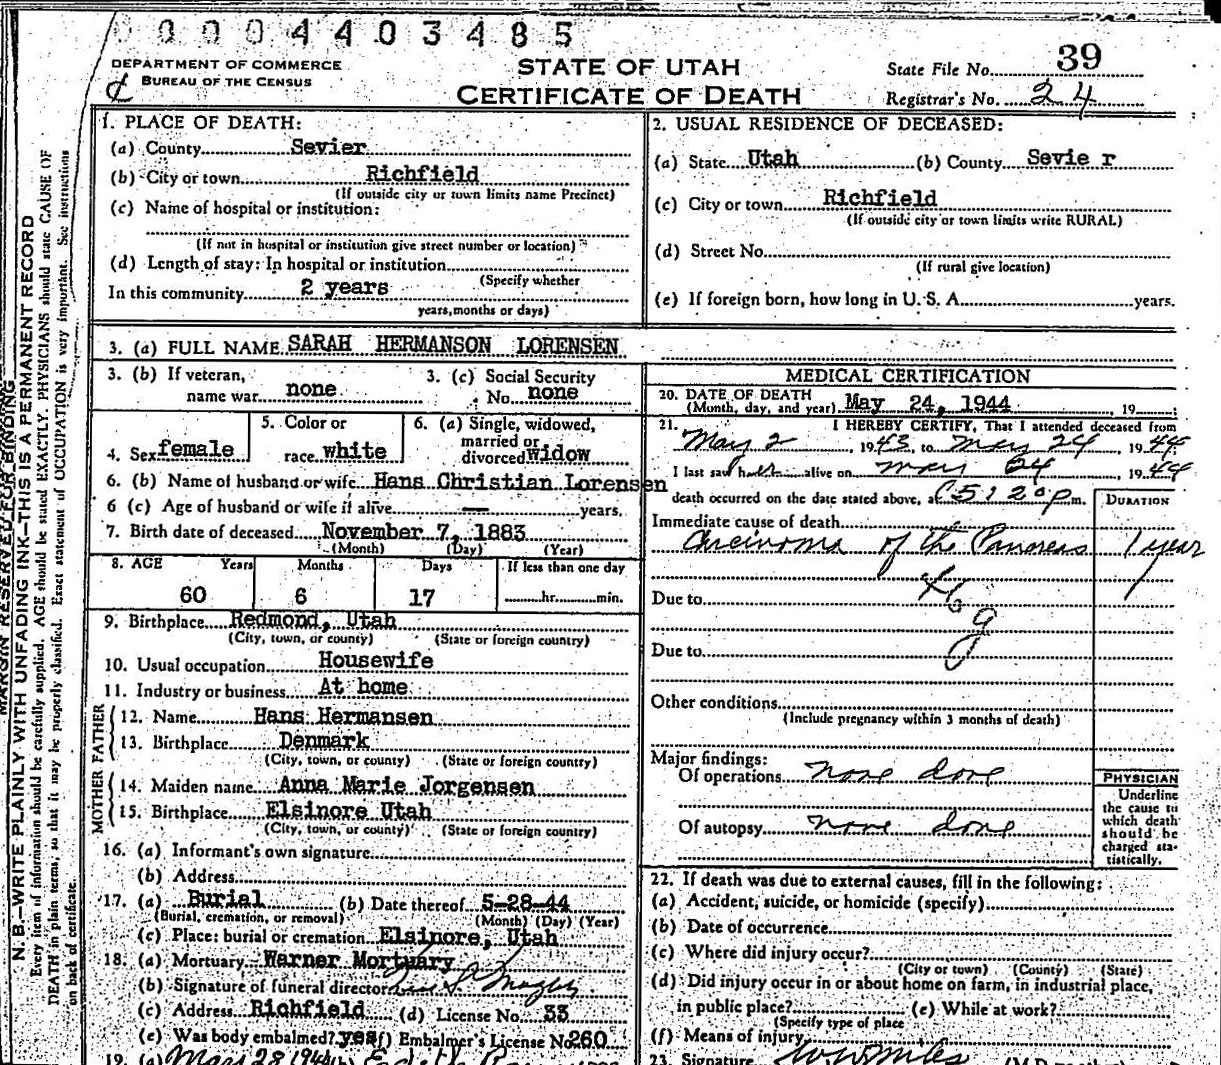 0 0 0 0 4 4 0 3 4 8 5
DEPARTMENT OF COMMERCE
BUREAU OF THE CENSUS
STATE OF UTAH
CERTIFICATE OF DEATH
State File No. 39
Registrar's No. 24
MARGIN RESERVED FOR BINDING
N. B.—WRITE PLAINLY WITH UNFADING INK—THIS IS A PERMANENT RECORD
Every item of information should be carefully supplied. AGE should be stated EXACTLY. PHYSICIANS should state CAUSE OF
DEATH in plain terms, so that it may be properly classified. Exact statement of OCCUPATION is very important. See instructions
on back of certificate.
1. PLACE OF DEATH:
(a) County Sevier
(b) City or town Richfield
(If outside city or town limits name Precinct)
(c) Name of hospital or institution:
(If not in hospital or institution give street number or location)
(d) Length of stay: In hospital or institution
(Specify whether
In this community 2 years
years, months or days)
2. USUAL RESIDENCE OF DECEASED:
(a) State Utah (b) County Sevie r
(c) City or town Richfield
(If outside city or town limits write RURAL)
(d) Street No.
(If rural give location)
(e) If foreign born, how long in U. S. A. years.
3. (a) FULL NAME SARAH HERMANSON LORENSEN
3. (b) If veteran, name war none
3. (c) Social Security No. none
4. Sex female
5. Color or race white
6. (a) Single, widowed, married or divorced widow
6. (b) Name of husband or wife Hans Christian Lorensen
6 (c) Age of husband or wife if alive — years.
7. Birth date of deceased November 7, 1883
(Month) (Day) (Year)
8. AGE Years Months Days If less than one day
60 6 17 hr. min.
9. Birthplace Redmond, Utah
(City, town, or county) (State or foreign country)
10. Usual occupation Housewife
11. Industry or business At home
FATHER
12. Name Hans Hermansen
13. Birthplace Denmark
(City, town, or county) (State or foreign country)
MOTHER
14. Maiden name Anna Marie Jorgensen
15. Birthplace Elsinore Utah
(City, town, or county) (State or foreign country)
16. (a) Informant's own signature
(b) Address
17. (a) Burial (b) Date thereof 5-28-44
(Burial, cremation, or removal) (Month) (Day) (Year)
(c) Place: burial or cremation Elsinore, Utah
18. (a) Mortuary Warner Mortuary
(b) Signature of funeral director
(c) Address Richfield (d) License No. 33
(e) Was body embalmed? yes (f) Embalmer's License No. 260
19. (a) May 28 1944 (b)
MEDICAL CERTIFICATION
20. DATE OF DEATH
(Month, day, and year) May 24, 1944, 19
21. I HEREBY CERTIFY, That I attended deceased from
May 2, 1943, to May 24, 1944
I last saw her alive on May 24, 1944
death occurred on the date stated above, at 5:20 p m.
DURATION
Immediate cause of death
Carcinoma of the Pancreas 1 year
Due to
g
Due to
Other conditions
(Include pregnancy within 3 months of death)
Major findings:
Of operations none done
Of autopsy none done
PHYSICIAN
Underline
the cause to
which death
should be
charged sta-
tistically.
22. If death was due to external causes, fill in the following:
(a) Accident, suicide, or homicide (specify)
(b) Date of occurrence
(c) Where did injury occur?
(City or town) (County) (State)
(d) Did injury occur in or about home on farm, in industrial place,
in public place? (e) While at work?
(Specify type of place
(f) Means of injury
23. Signature